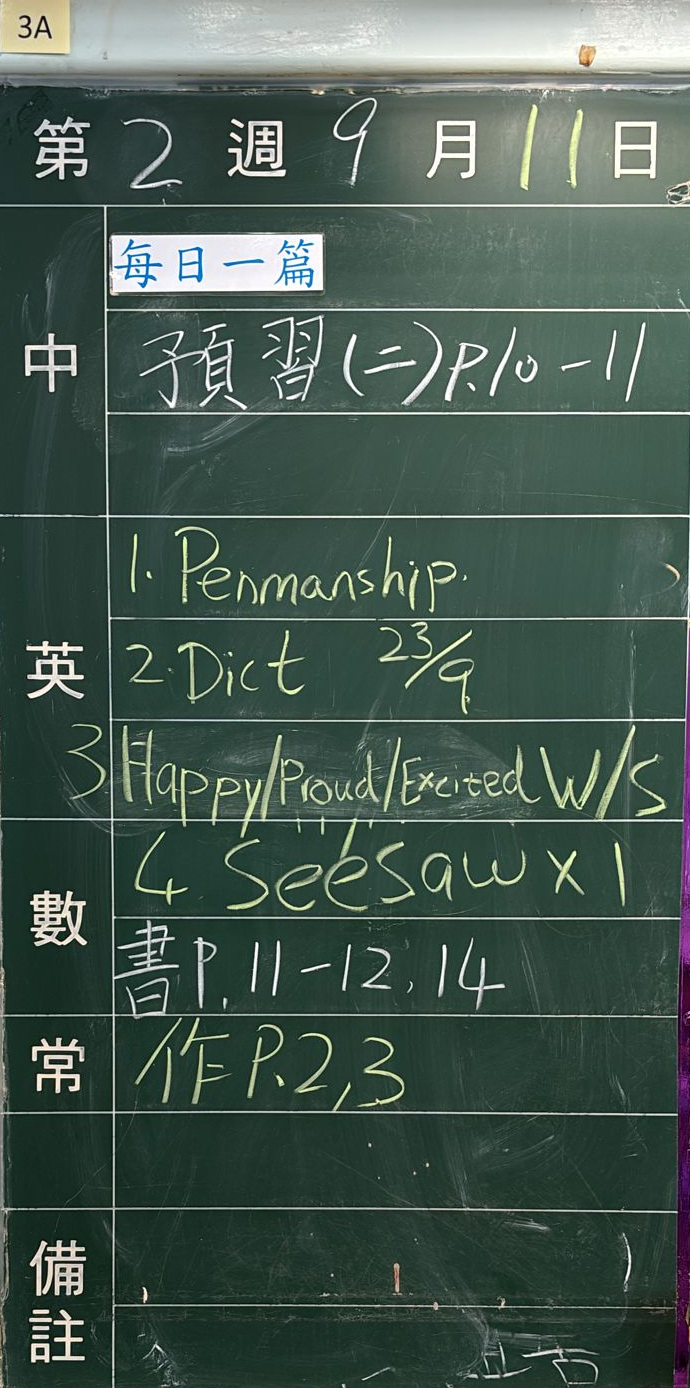 3A
第 2 週 9 月 11 日
每日一篇
中
預習(二)P.10-11
1. Penmanship.
英
2. Dict 23/9
3 Happy/Proud/Excited W/S
4 Seesaw x 1
數
書P. 11-12, 14
常
作P.2,3
備註